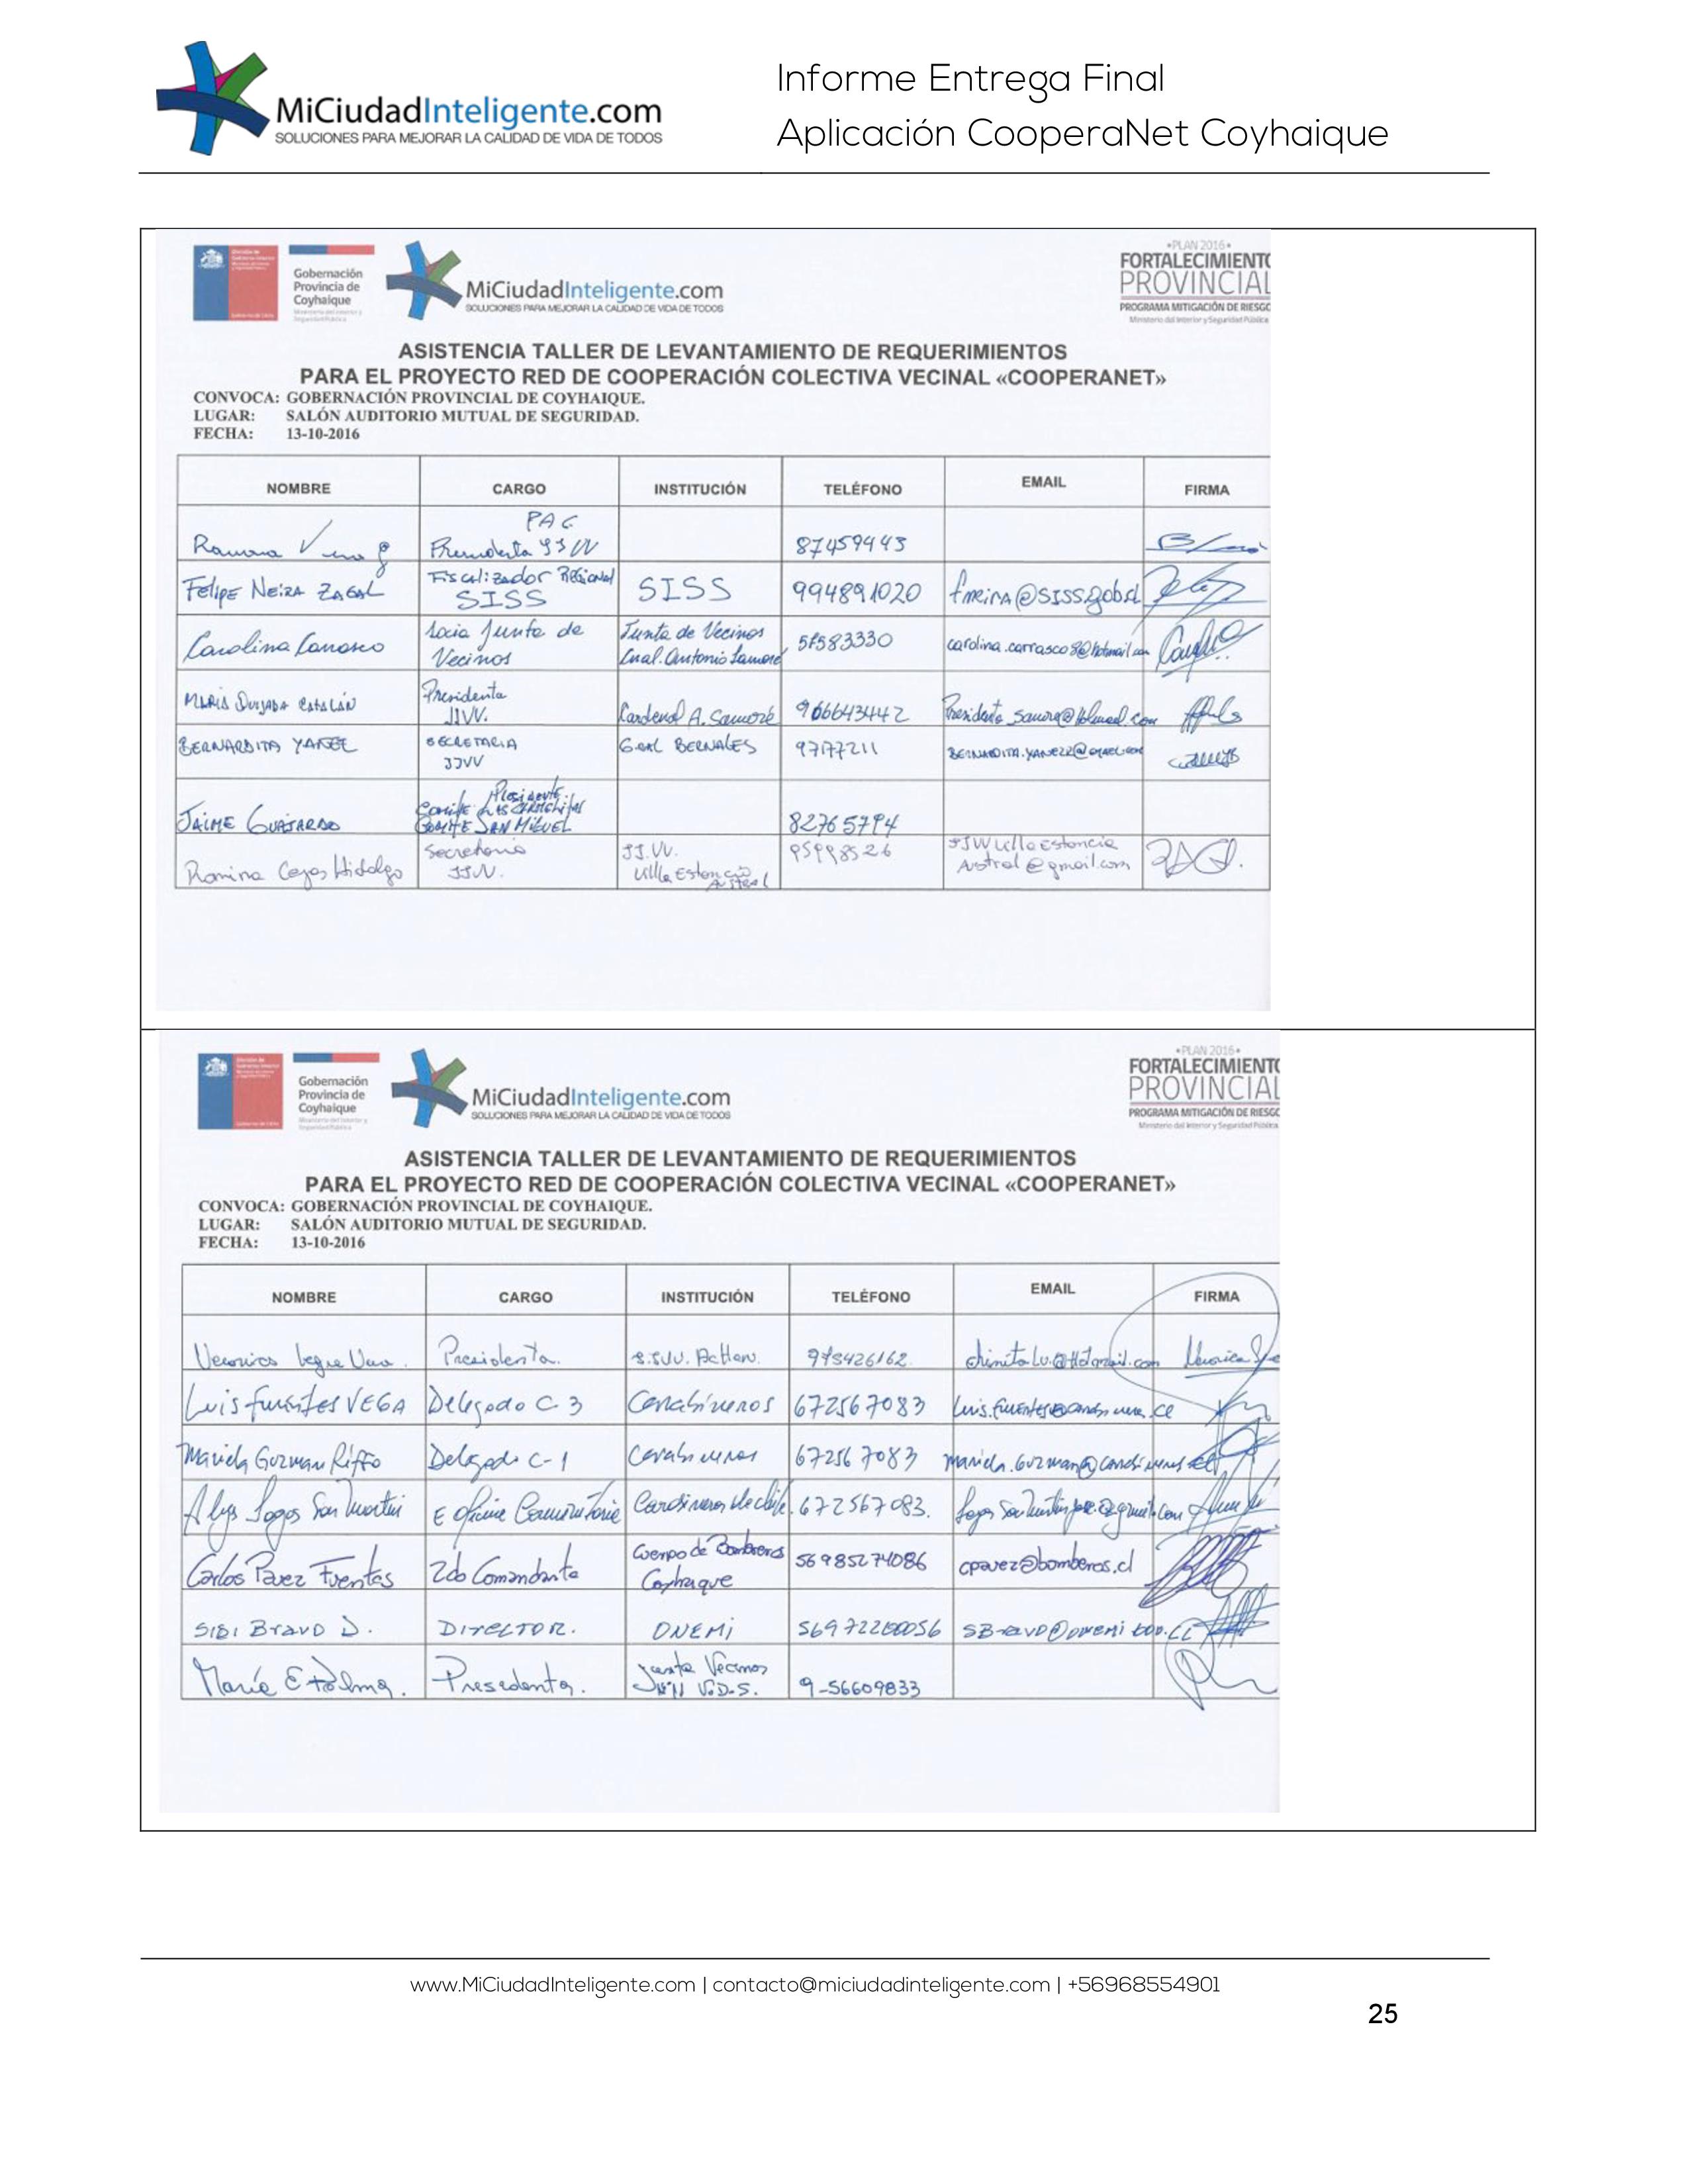 MiCiudadInteligente.com
SOLUCIONES PARA MEJORAR LA CALIDAD DE VIDA DE TODOS
Informe Entrega Final
Aplicación CooperaNet Coyhaique
Gobernación
Provincia de
Coyhaique
Ministerio del Interior y
Seguridad Pública
MiCiudadInteligente.com
SOLUCIONES PARA MEJORAR LA CALIDAD DE VIDA DE TODOS
•PLAN 2016•
FORTALECIMIENTO
PROVINCIAL
PROGRAMA MITIGACIÓN DE RIESGO
Ministerio del Interior y Seguridad Pública
ASISTENCIA TALLER DE LEVANTAMIENTO DE REQUERIMIENTOS
PARA EL PROYECTO RED DE COOPERACIÓN COLECTIVA VECINAL «COOPERANET»
CONVOCA: GOBERNACIÓN PROVINCIAL DE COYHAIQUE.
LUGAR: SALÓN AUDITORIO MUTUAL DE SEGURIDAD.
FECHA: 13-10-2016
NOMBRE CARGO INSTITUCIÓN TELÉFONO EMAIL FIRMA
PAC
Ramona Presidenta JJVV 87459443
FELIPE NEIRA ZAGAL Fiscalizador Regional SISS SISS 994891020 fneira@siss.gob.cl
Carolina Carrasco Socia Junta de Vecinos Junta de Vecinos Cnal. Antonio Samoré 58583330 carolina.carrasco8@hotmail.com
MARIA QUIJADA CATALÁN Presidenta JJVV. Cardenal A. Samoré 966643442
BERNARDITA YAÑEZ SECRETARIA JJVV GRAL BERNALES 97177211
JAIME GUAJARDO Presidente Comité COMITE SAN MIGUEL 82765794
Romina Hidalgo Secretaria JJ.VV. JJ.VV. Villa Estancia Austral 95998526 JJVVVillaEstancia Austral@gmail.com
Gobernación
Provincia de
Coyhaique
Ministerio del Interior y
Seguridad Pública
MiCiudadInteligente.com
SOLUCIONES PARA MEJORAR LA CALIDAD DE VIDA DE TODOS
•PLAN 2016•
FORTALECIMIENTO
PROVINCIAL
PROGRAMA MITIGACIÓN DE RIESGO
Ministerio del Interior y Seguridad Pública
ASISTENCIA TALLER DE LEVANTAMIENTO DE REQUERIMIENTOS
PARA EL PROYECTO RED DE COOPERACIÓN COLECTIVA VECINAL «COOPERANET»
CONVOCA: GOBERNACIÓN PROVINCIAL DE COYHAIQUE.
LUGAR: SALÓN AUDITORIO MUTUAL DE SEGURIDAD.
FECHA: 13-10-2016
NOMBRE CARGO INSTITUCIÓN TELÉFONO EMAIL FIRMA
Veronica Presidenta. 978426162
Luis Fuentes VEGA Delegado C-3 Carabineros 672567083
Mariela Guzman Riffo Delegado C-1 Carabineros 672567083
San Martin Oficina Comunitaria Carabineros de Chile. 672567083.
Carlos Pavez Fuentes 2do Comandante Cuerpo de Bomberos Coyhaique 56985274086 cpavez@bomberos.cl
SIDI Bravo D. DIRECTOR. ONEMI 56972260056 SBravo@onemi.gov.cl
María Presidenta. Junta Vecinos V.D.S. 9-56609833
www.MiCiudadInteligente.com | contacto@miciudadinteligente.com | +56968554901
25